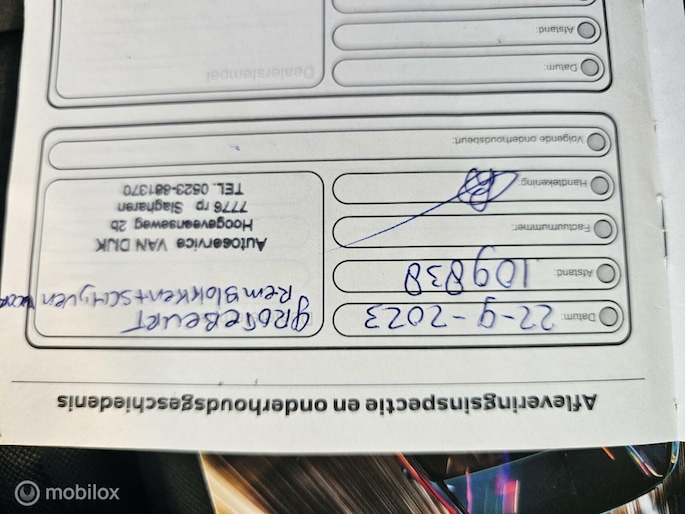 Afleveringsinspectie en onderhoudsgeschiedenis
Datum: 22-9-2023
Afstand: 109838
Factuurnummer:
Handtekening:
Volgende onderhoudsbeurt:
GROTEBEURT
RemBlokken+Schijven voor
Autoservice VAN DIJK
Hoogeveenseweg 2b
7776 rp Slagharen
TEL. 0523-681370
Datum:
Afstand:
Dealerstempel
mobilox